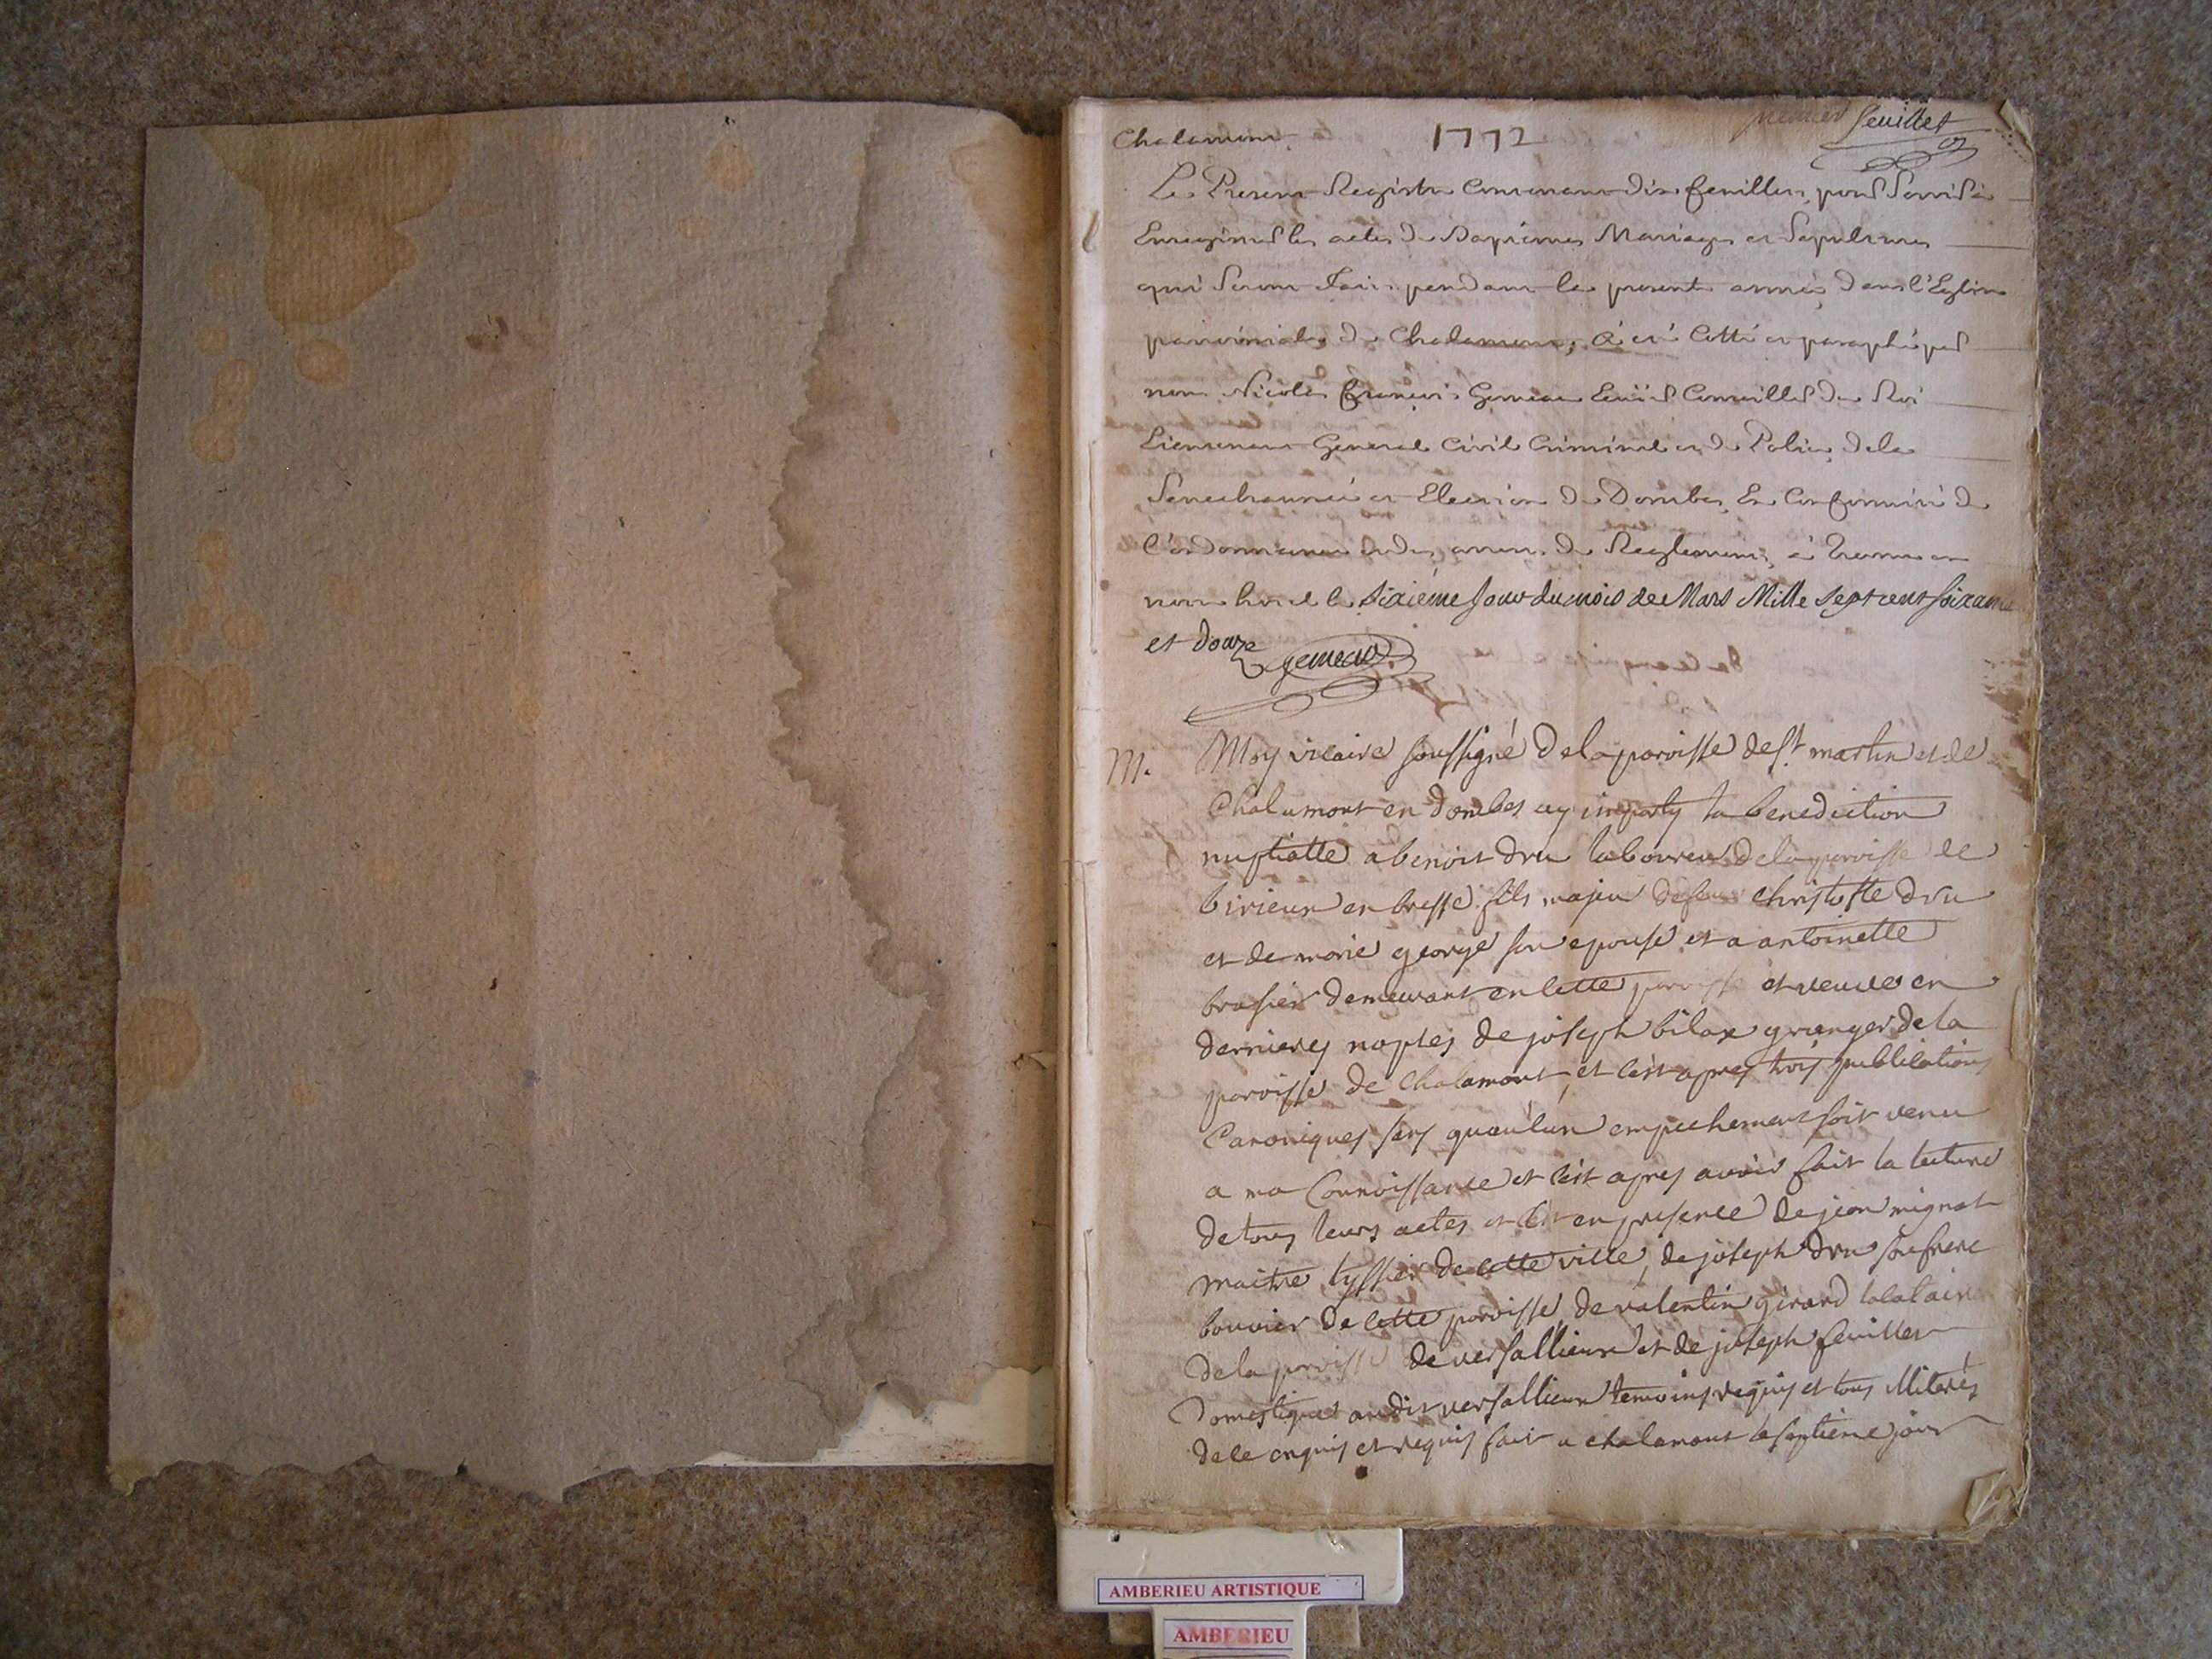 Chalamont
1772
premier feuillet
Le Present Registre Contenant dix feuillets, pour Servir à
Enregistrer les actes de Baptêmes Mariages et Sepultures
qui Seront faits pendant la presente année dans l'Eglise
paroissiale de Chalamont, à été Cotté et paraphé par
nous Nicolas François Gemeau Ecuier Conseiller du Roi
Lieutenant General Civil Criminel et de Police de la
Senechaussée et Election de Dombes, En Conformité de
l'ordonnance et des arrets de Reglement, à Trevoux en
notre hotel le Sixiéme Jour du mois de Mars Mille Sept cent soixante
et douze gemeau
M. Moy vicaire soussigné de la paroisse de st. martin et de
Chalamont en dombes ay imparty la benediction
nuptialle a benoit dru laboureur de la paroisse de
birieux en bresse fils majeur de feu christofle dru
et de marie george son epouse et a antoinette
brasier demeurant en cette paroisse et veuve en
dernieres noples de joseph bilax granger de la
paroisse de Chalamont, et c'est apres trois publications
Canoniques sans qu'aucun empechement soit venu
a ma Connoissance et c'est apres avoir fait la lecture
de tous leurs actes et c'est en presence de jean mignat
maitre tyssier de cette ville, de joseph dru son frere
bouvier de cette paroisse, de valentin girard locataire
de la paroisse de versallieux et de joseph feuillet
Domestiques audit versallieux temoins requis et tous illiterés
de ce enquis et requis fait a chalamont le septieme jour
AMBERIEU ARTISTIQUE
AMBERIEU